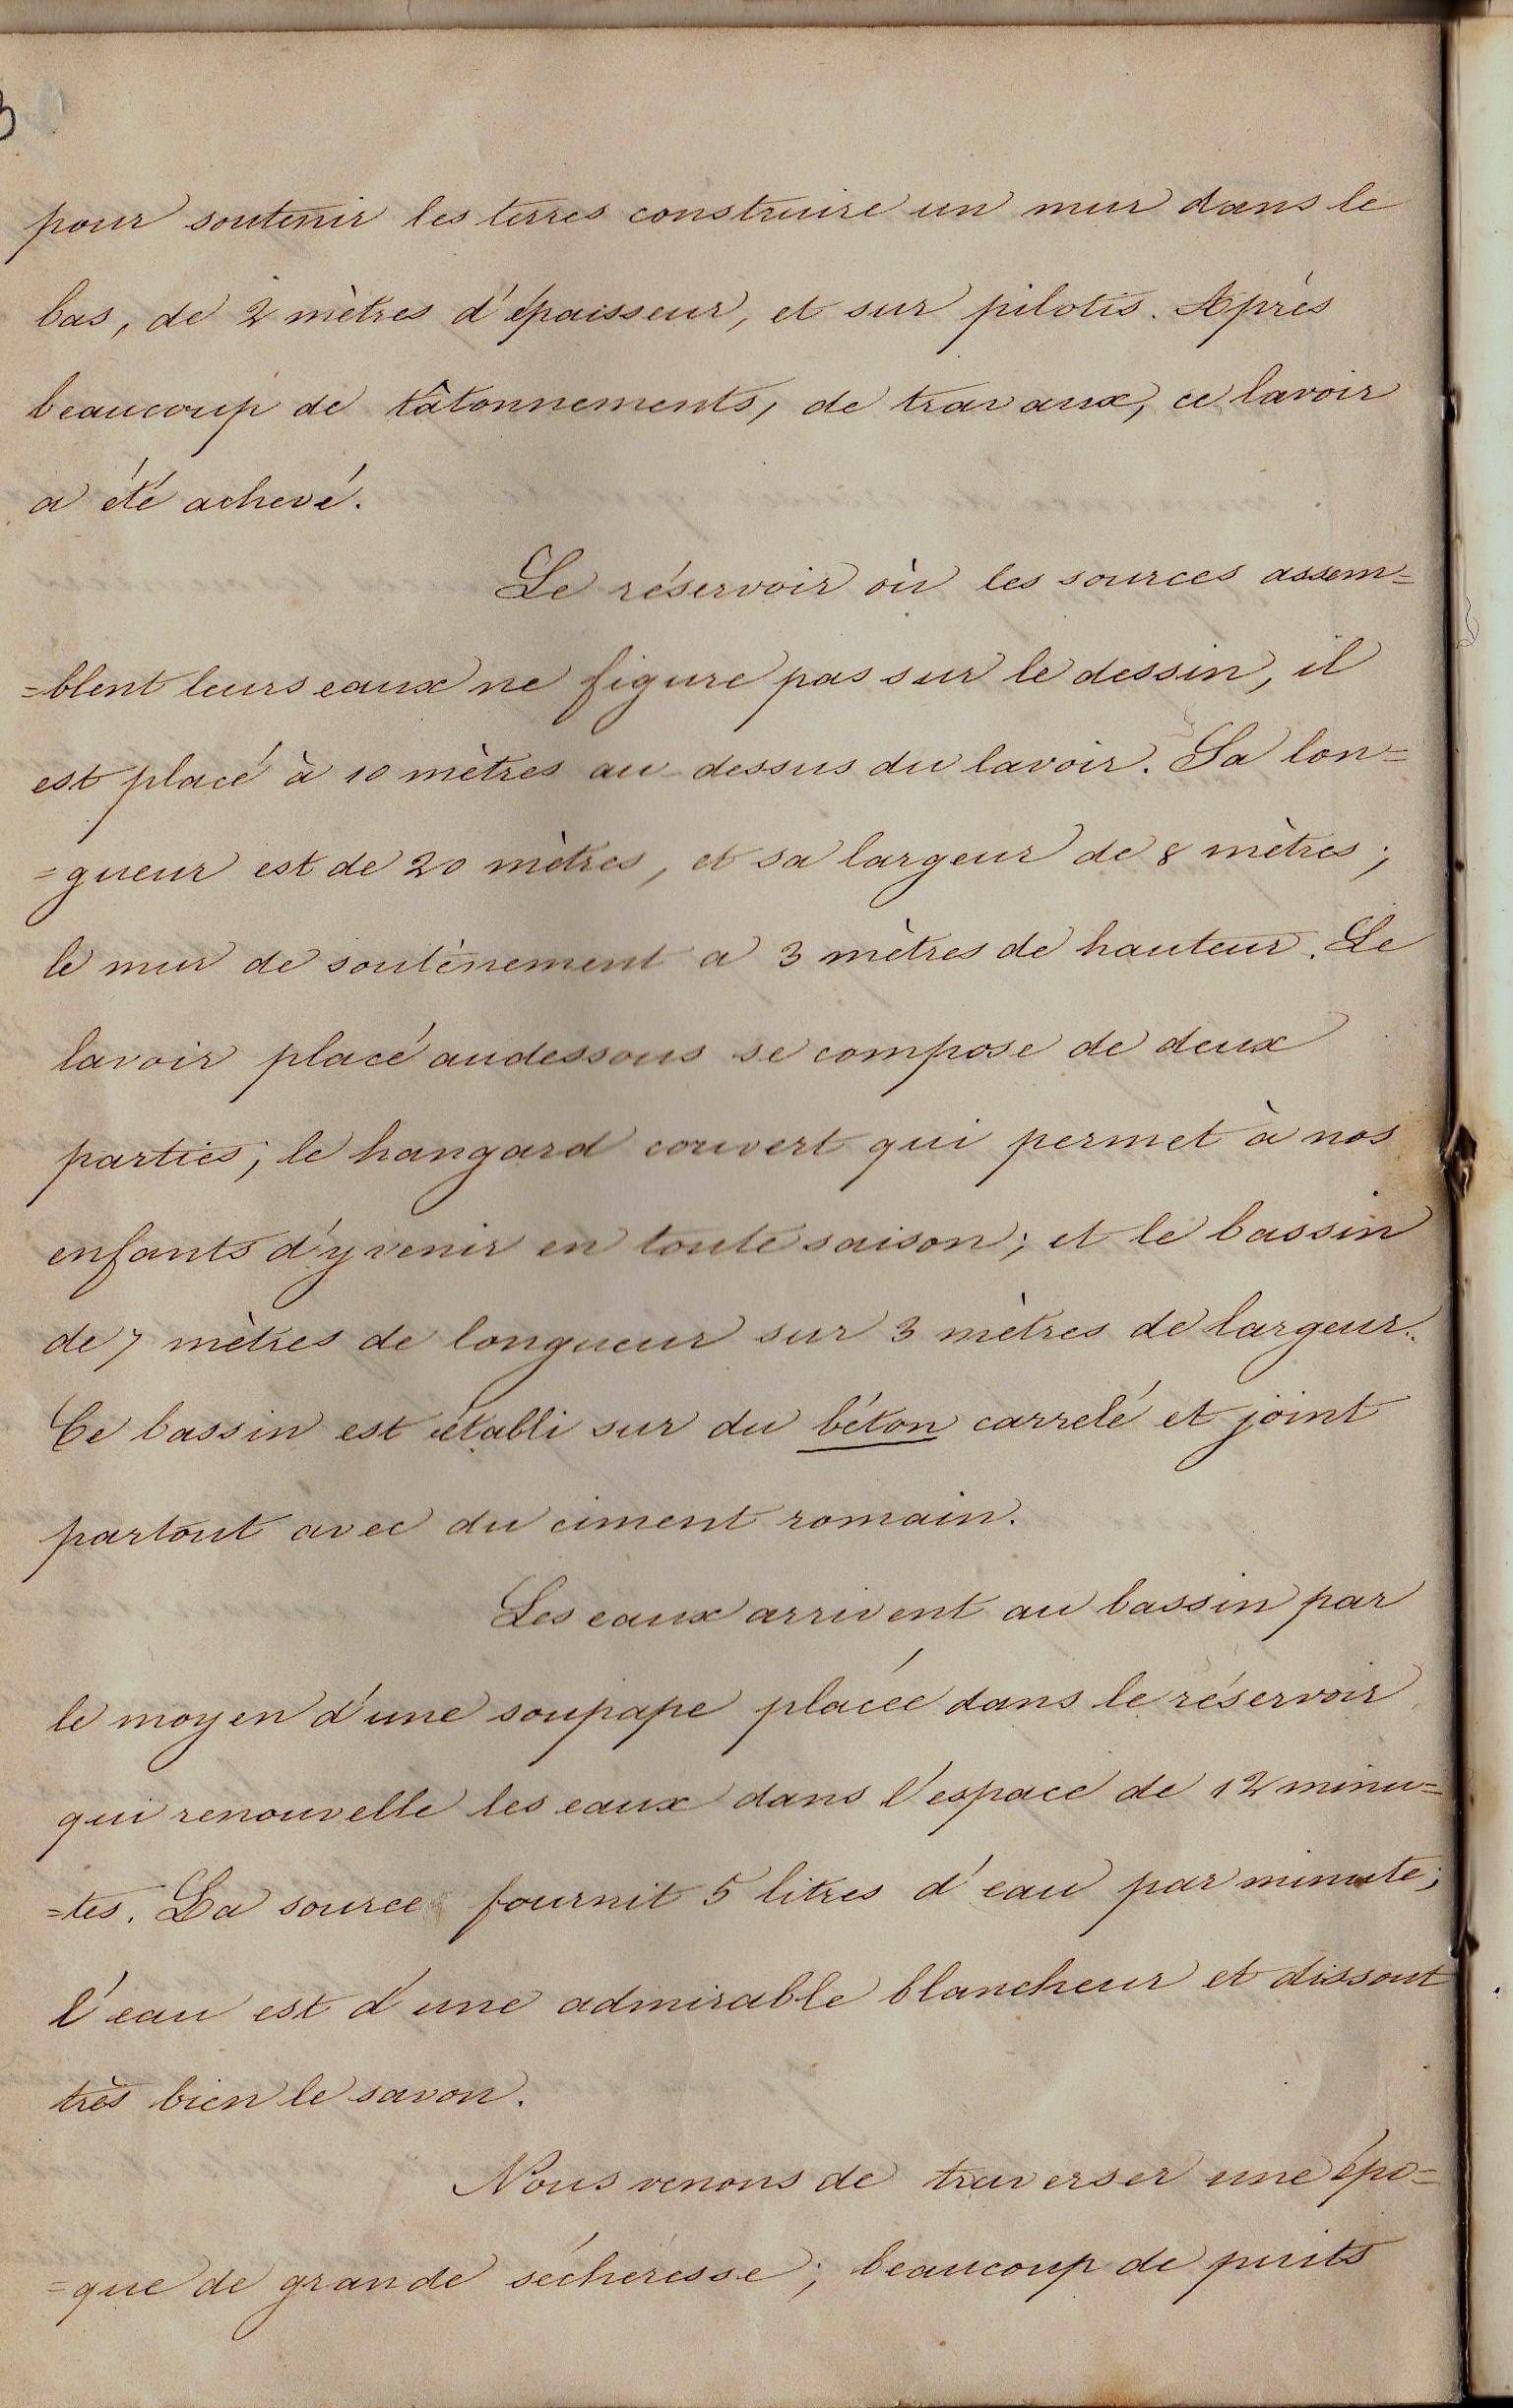 3
pour soutenir les terres construire un mur dans le
bas, de 2 mètres d'épaisseur, et sur pilotis. Après
beaucoup de tâtonnements, de travaux, ce lavoir
a été achevé.
Le réservoir où les sources assem=
=blent leurs eaux ne figure pas sur le dessin, il
est placé à 10 mètres au-dessus du lavoir. Sa lon=
=gueur est de 20 mètres, et sa largeur de 8 mètres;
le mur de soutènement a 3 mètres de hauteur. Le
lavoir placé audessous se compose de deux
parties; le hangard couvert qui permet à nos
enfants d'y venir en toute saison; et le bassin
de 7 mètres de longueur sur 3 mètres de largeur.
Ce bassin est établi sur du béton carrelé et joint
partout avec du ciment romain.
Les eaux arrivent au bassin par
le moyen d'une soupape placée dans le réservoir
qui renouvelle les eaux dans l'espace de 12 minu=
=tes. La source fournit 5 litres d'eau par minute;
l'eau est d'une admirable blancheur et dissout
très bien le savon.
Nous venons de traverser une épo=
=que de grande sécheresse; beaucoup de puits